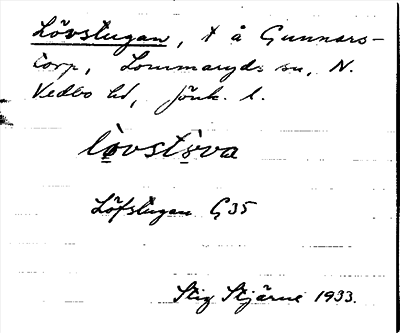 Lövstugan, t å Gunnars-
torp, Lommaryds sn, N.
Vedbo hd, Jönk. l.
lòvstùva
Löfstugan G35
Stig Stjärne 1933.